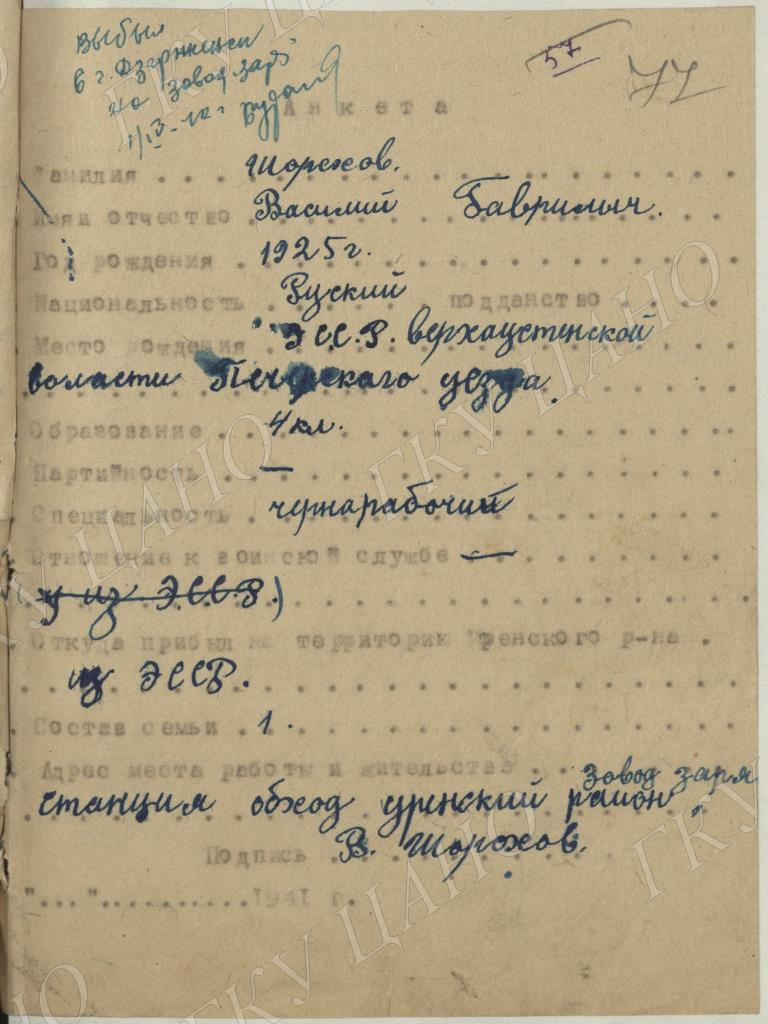 выбыл
в г. Дзержинск
на завод "Заря"
57
77
Анкета
Фамилия . . . Шорохов.
Имя и отчество . Василий Гаврилыч.
Год рождения . 1925 г.
Национальность . Руский подданство . . . .
Место рождения . ЭССР. верхаустенской
воласти Печерскаго уезда.
Образование . . 4 кл.
Партийность . —
Специальность . чернарабочий
Отношение к воинской службе —
у из ЭССР.)
Откуда прибыл на территорию Уренского р-на .
из ЭССР.
Состав семьи . 1.
Адрес места работы и жительства . . завод заря
станция обход уренский район.
Подпись . В. Шорохов.
"..."..........1941 г.
ГКУ ЦАНО